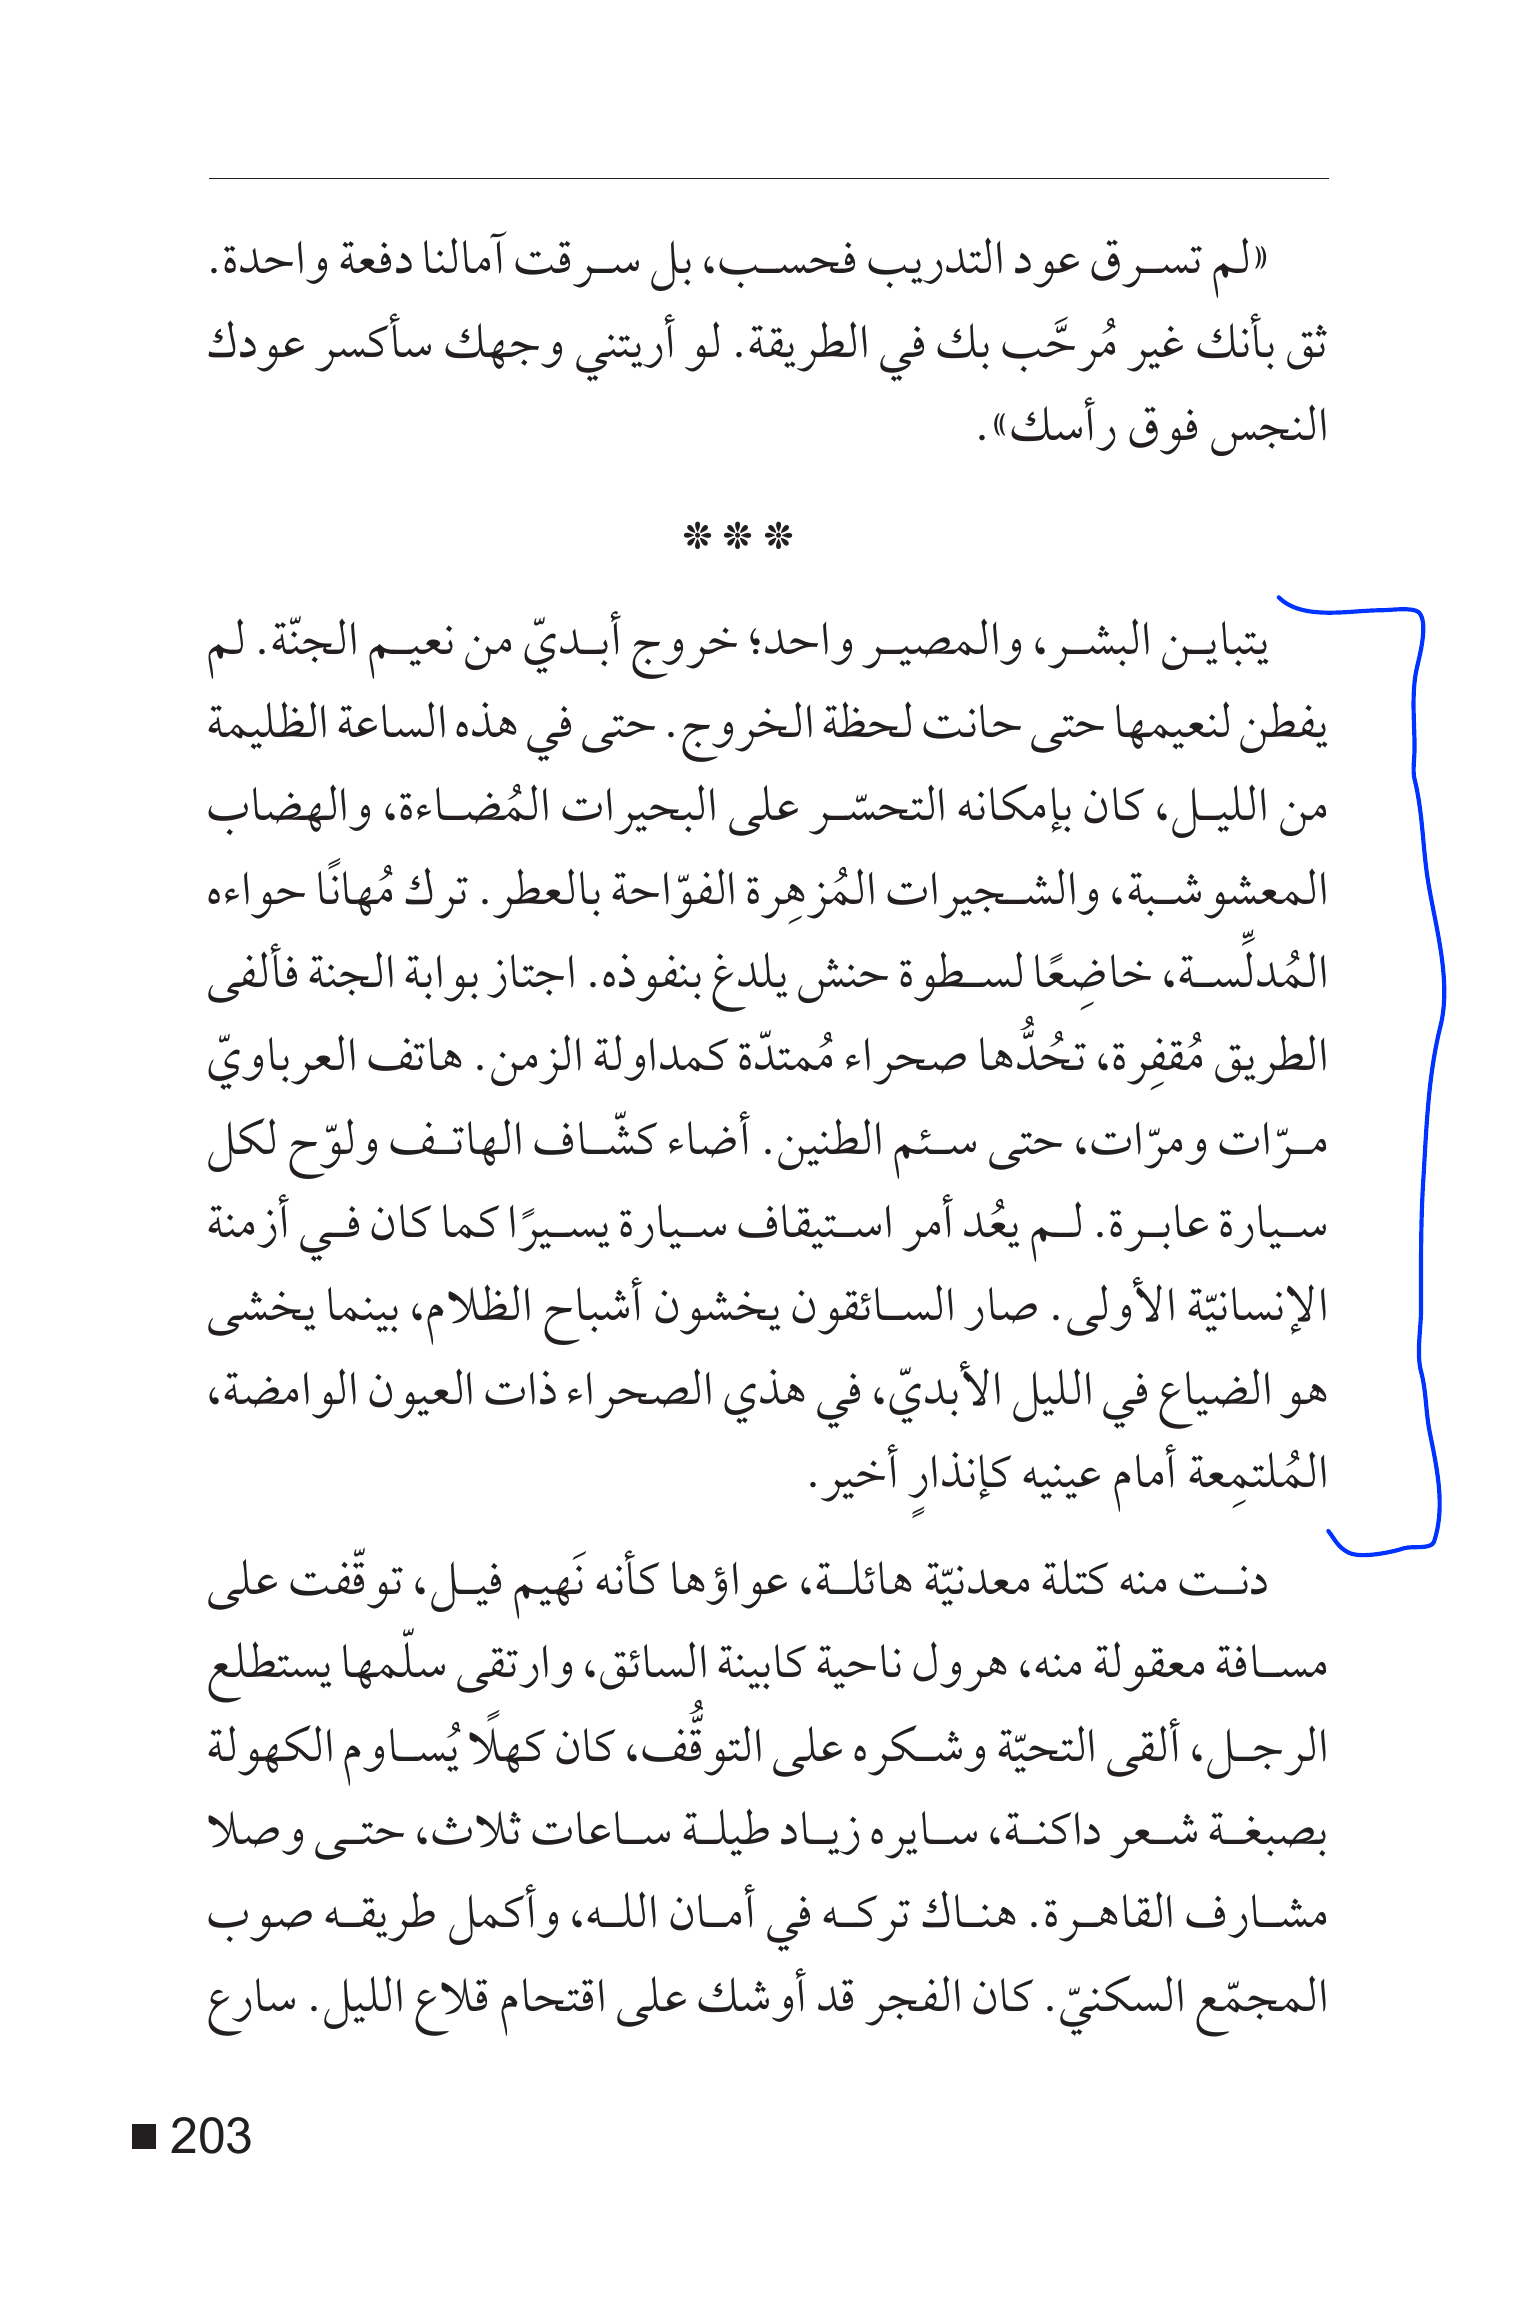 «لم تسرق عود التدريب فحسب، بل سرقت آمالنا دفعة واحدة.
ثق بأنك غير مُرحَّب بك في الطريقة. لو أريتني وجهك سأكسر عودك
النجس فوق رأسك».
***
يتباين البشر، والمصير واحد؛ خروج أبديّ من نعيم الجنّة. لم
يفطن لنعيمها حتى حانت لحظة الخروج. حتى في هذه الساعة الظليمة
من الليل، كان بإمكانه التحسّر على البحيرات المُضاءة، والهضاب
المعشوشبة، والشجيرات المُزهِرة الفوّاحة بالعطر. ترك مُهانًا حواءه
المُدلِّسة، خاضِعًا لسطوة حنش يلدغ بنفوذه. اجتاز بوابة الجنة فألفى
الطريق مُقفِرة، تحُدُّها صحراء مُمتدّة كمداولة الزمن. هاتف العرباويّ
مرّات ومرّات، حتى سئم الطنين. أضاء كشّاف الهاتف ولوّح لكل
سيارة عابرة. لم يعُد أمر استيقاف سيارة يسيرًا كما كان في أزمنة
الإنسانيّة الأولى. صار السائقون يخشون أشباح الظلام، بينما يخشى
هو الضياع في الليل الأبديّ، في هذي الصحراء ذات العيون الوامضة،
المُلتمِعة أمام عينيه كإنذارٍ أخير.
دنت منه كتلة معدنيّة هائلة، عواؤها كأنه نَهيم فيل، توقّفت على
مسافة معقولة منه، هرول ناحية كابينة السائق، وارتقى سلّمها يستطلع
الرجل، ألقى التحيّة وشكره على التوقُّف، كان كهلًا يُساوم الكهولة
بصبغة شعر داكنة، سايره زياد طيلة ساعات ثلاث، حتى وصلا
مشارف القاهرة. هناك تركه في أمان الله، وأكمل طريقه صوب
المجمّع السكنيّ. كان الفجر قد أوشك على اقتحام قلاع الليل. سارع
203